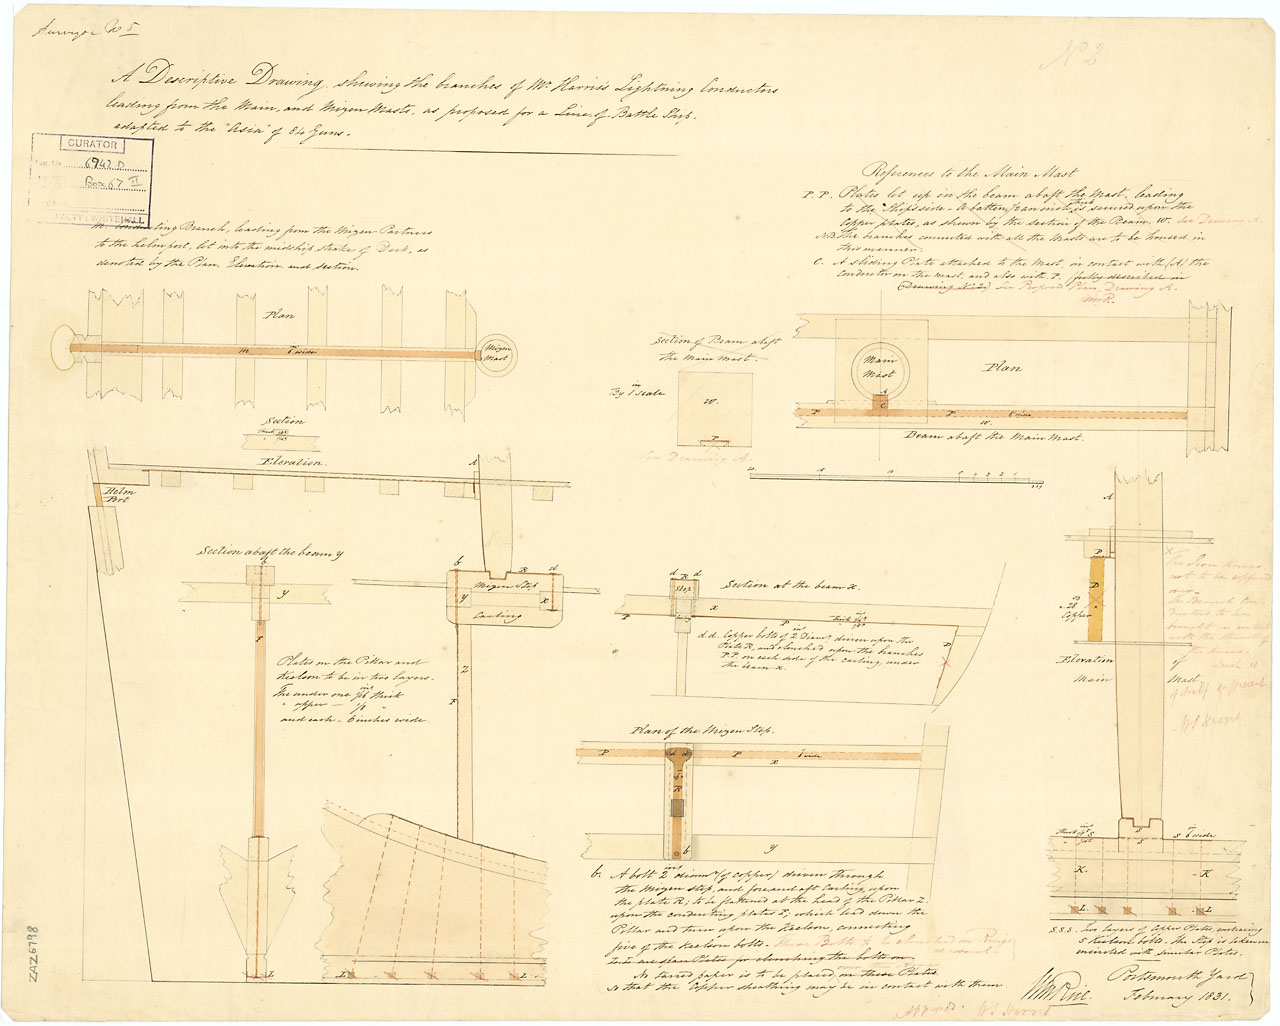 Surveyor No 5
No 2
A Descriptive Drawing, shewing the branches of Mr Harris's Lightning Conductors
leading from the Main, and Mizen Masts, as proposed for a Line of Battle Ship.
adapted to the "Asia" of 84 Guns.
CURATOR
6942 D
Box 67 II
WHITEHALL
Conducting Branch, leading from the Mizen Partners
to the helmport, let into the midship strake of Deck, as
denoted by the Plan, Elevation and section.
References to the Main Mast
P. P. Plates let up in the beam abaft the Mast, leading
to the Ships side. A batten, fearnish is secured upon the
Copper plates, as shewn by the section of the Beam, W. See Drawing A.
NB The branches connected with all the Masts are to be housed in
this manner.
C. A sliding Plate attached to the Mast, in contact with (A) the
conductor on the mast, and also with P. (fully described in
Drawing No 2) See Proposed Plan, Drawing A.
WmR.
Plan
m 6 in wide
Mizen
Mast
Section
Section of Beam abaft
the Main Mast.
By 1 in scale
W.
P
See Drawing A.
Main
Mast
Plan
A
C
P
P. 6 wide
W.
Beam abaft the Main Mast.
Elevation.
A
Helm
Port
Section abaft the beam y
b
y
F
b
R
d
Mizen Step
y
x
Carling
Z
F
Plates on the Pillar and
Keelson to be in two layers.
The under one 1/16 in thick
" upper — 1/8 "
and each - 6 inches wide.
L
L
L
Section at the beam x.
d R d
Step
x
P
P
D
d.d. Copper bolts of 2 in Diamr driven upon the
Plate R, and clenched upon the branches
P.P. on each side of the carling, under
the beam x.
Plan of the Mizen Step.
P
d d
P 6 wide
x
6 in
R
b
y
b. A bolt 2 ins diamr (of copper) driven through
the Mizen step, and fore and aft Carling, upon
the plate R; to be flattened at the head of the Pillar Z.
upon the conducting plates F; which lead down the
Pillar and turn upon the Keelson, connecting
five of the Keelson bolts. These Bolts to be clenched on Rings
No tarred paper is to be placed on these Plates
so that the Copper sheathing may be in contact with them
Approved. W S Harris
A
P
D
28
Copper
Elevation
of
Main
Mast.
W S Harris
S
S
S 6 in wide
K.
K
L
L
S.S.S. two layers of Copper Plates, embracing
5 Keelson bolts. the Step is taken in
connected with similar Plates.
Wm Rice.
Portsmouth Yard
February 1831.
ZAZ6798